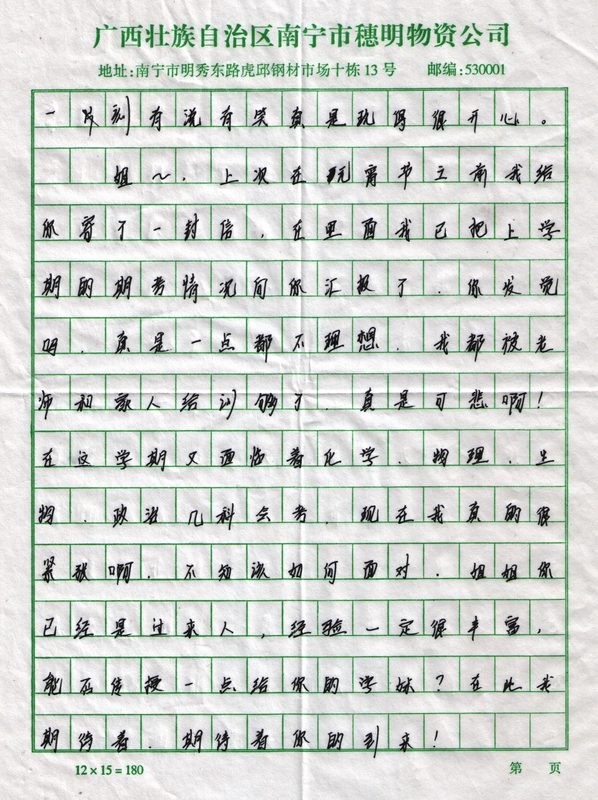 广西壮族自治区南宁市穗明物资公司
地址:南宁市明秀东路虎邱钢材市场十栋13号 邮编:530001
一片刻有说有笑真是玩得很开心。
姐~,上次在玩宵节之前我给
你寄了一封信,在里面我已把上学
期的期考情况向你汇报了,你发觉
吗,真是一点都不理想,我都被老
师和家人给训够了,真是可悲啊!
在这学期又面临着化学、物理、生
物、政治几科会考,现在我真的很
紧张啊,不知该如何面对,姐姐你
已经是过来人,经验一定很丰富,
能否传授一点给你的学妹?在此我
期待着,期待着你的到来!
12×15=180 第 页